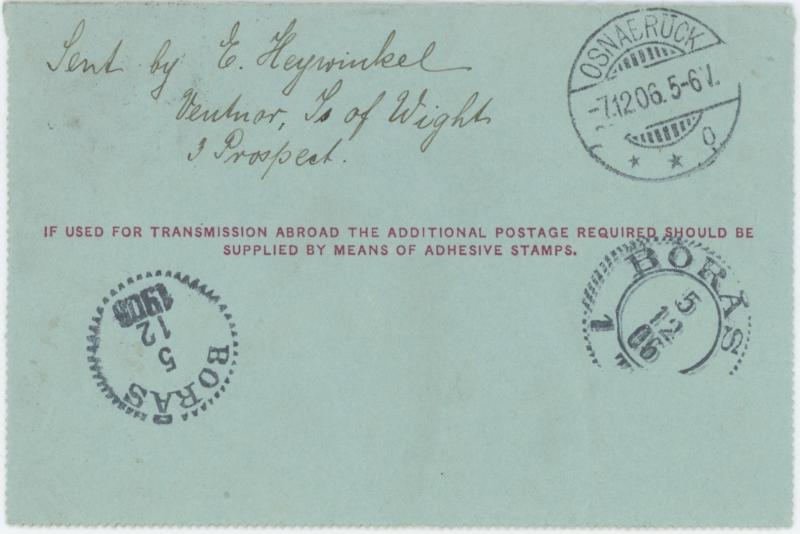 Sent by E. Heywinkel
Ventnor, Is of Wight
3 Prospect.
OSNABRÜCK
-7.12.06.5-6V.
* * o
IF USED FOR TRANSMISSION ABROAD THE ADDITIONAL POSTAGE REQUIRED SHOULD BE
SUPPLIED BY MEANS OF ADHESIVE STAMPS.
BORÅS
5
12
1906
BORÅS
5
12
06
1